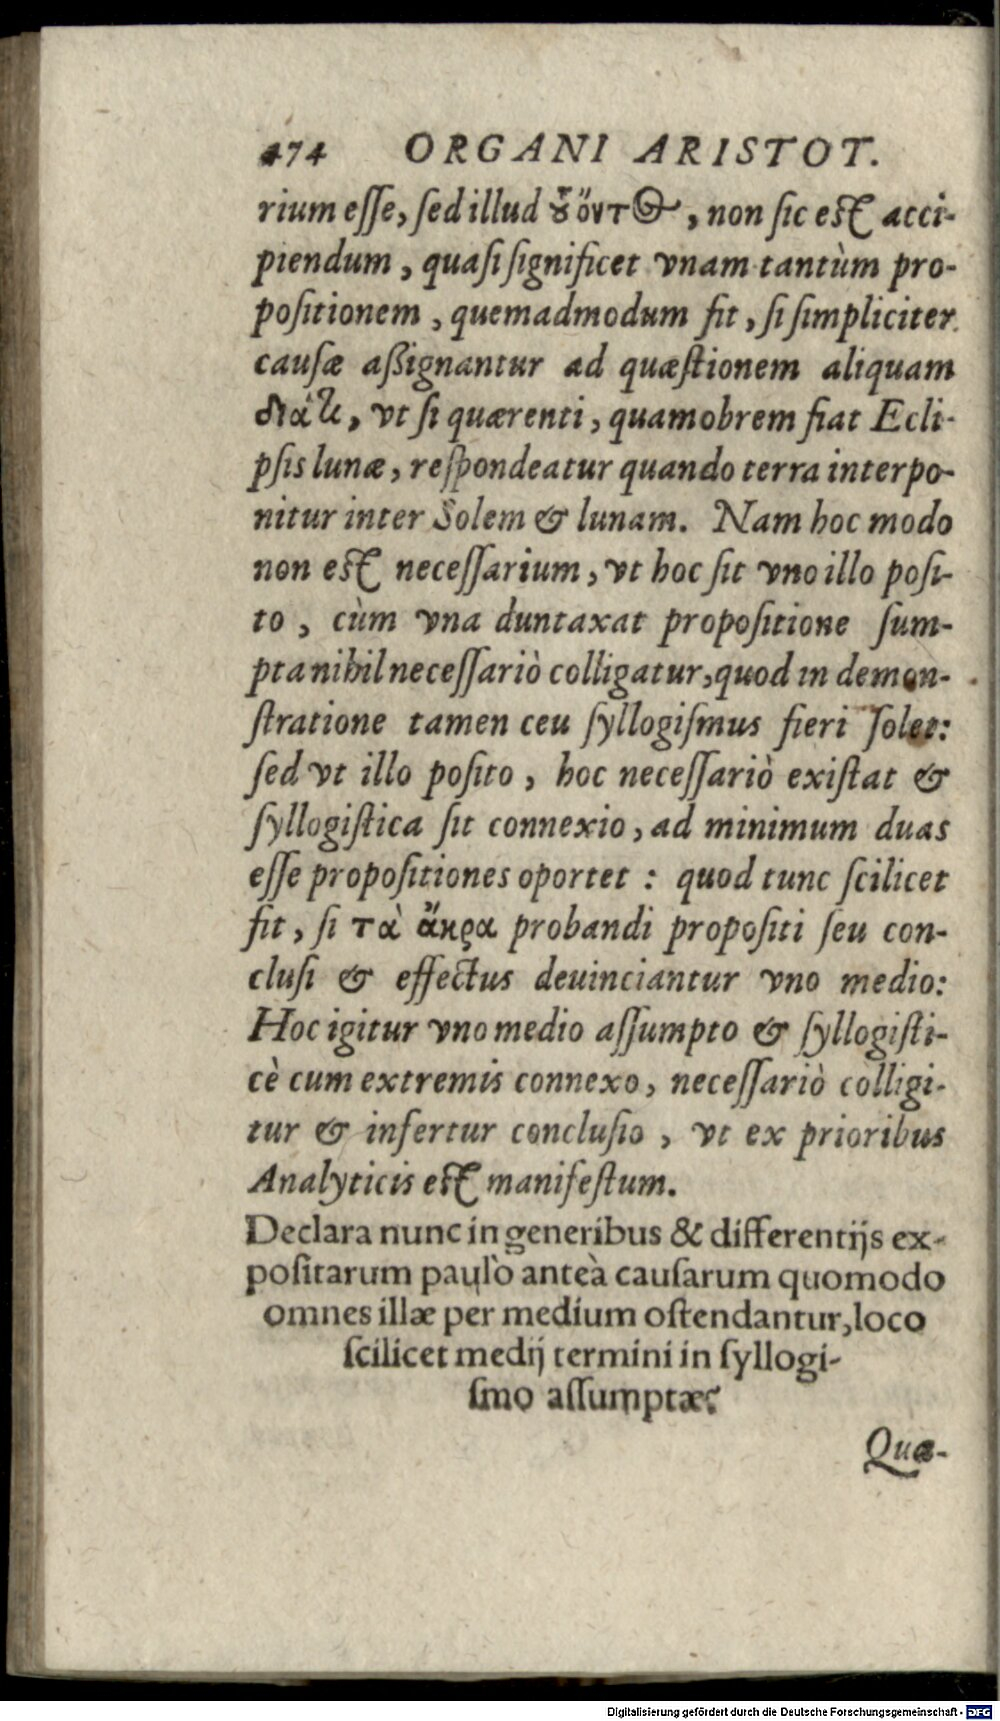 474 ORGANI ARISTOT.
rium esse, sed illud ὄντος, non sic est acci-
piendum, quasi significet vnam tantùm pro-
positionem, quemadmodum fit, si simpliciter
causæ aßignantur ad quæstionem aliquam
διάτι, vt si quærenti, quamobrem fiat Ecli-
psis lunæ, respondeatur quando terra interpo-
nitur inter Solem & lunam. Nam hoc modo
non est necessarium, vt hoc sit vno illo posi-
to, cùm vna duntaxat propositione sum-
pta nihil necessariò colligatur, quod in demon-
stratione tamen ceu syllogismus fieri solet:
sed vt illo posito, hoc necessariò existat &
syllogistica sit connexio, ad minimum duas
esse propositiones oportet: quod tunc scilicet
fit, si τὰ ἄκρα probandi propositi seu con-
clusi & effectus deuinciantur vno medio:
Hoc igitur vno medio assumpto & syllogisti-
cè cum extremis connexo, necessariò colligi-
tur & infertur conclusio, vt ex prioribus
Analyticis est manifestum.
Declara nunc in generibus & differentijs ex-
positarum paulò anteà causarum quomodo
omnes illæ per medium ostendantur, loco
scilicet medij termini in syllogi-
smo assumptæ?
Quæ-
Digitalisierung gefördert durch die Deutsche Forschungsgemeinschaft - DFG